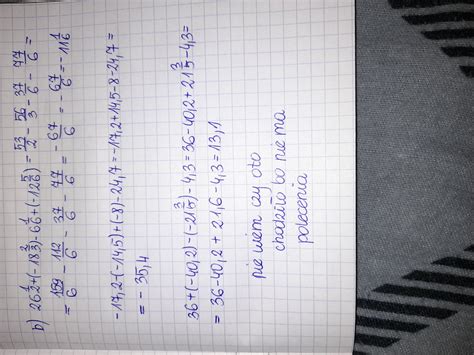 b) 26 1/2 + (-18 2/3) - 6 1/6 + (-12 5/6) = 53/2 - 56/3 - 37/6 - 77/6 =
= 159/6 - 112/6 - 37/6 - 77/6 = - 67/6 = - 67/6 = -11 1/6
-17,2-(-14,5)+(-8)-24,7=-17,2+14,5-8-24,7=
= - 35,4
36+(-40,2)-(-21 3/5)-4,3=36-40,2+21 3/5-4,3=
= 36-40,2 + 21,6 -4,3 = 13,1
nie wiem czy oto
chodziło bo nie ma
polecenia